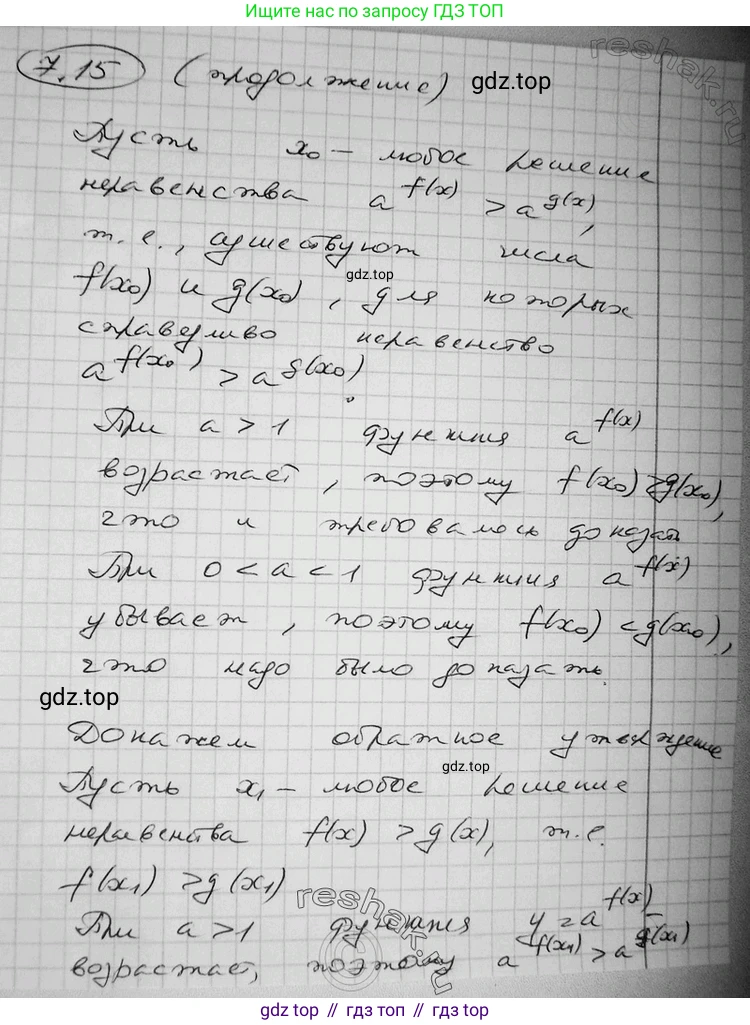 Ищите нас по запросу ГДЗ ТОП
7.15 (продолжение) gdz.top
reshak.ru
Пусть x₀ – любое решение
неравенства a^f(x) > a^g(x),
т.е., существуют числа
gdz.top
f(x₀) и g(x₀), для которых
справедливо неравенство
a^f(x₀) > a^g(x₀).
При a > 1 функция a^f(x)
возрастает, поэтому f(x₀) > g(x₀),
что и требовалось доказать
При 0 < a < 1 функция a^f(x)
убывает, поэтому f(x₀) < g(x₀),
что надо было доказать.
gdz.top
Докажем обратное утверждение
gdz.top
Пусть x₁ – любое решение
неравенства f(x) > g(x), т.е.
f(x₁) > g(x₁)
reshak.ru
При a > 1 функция y = a^f(x) –
возрастает, поэтому a^f(x₁) > a^g(x₁)
gdz.top // гдз топ // gdz.top // гдз топ // gdz.top